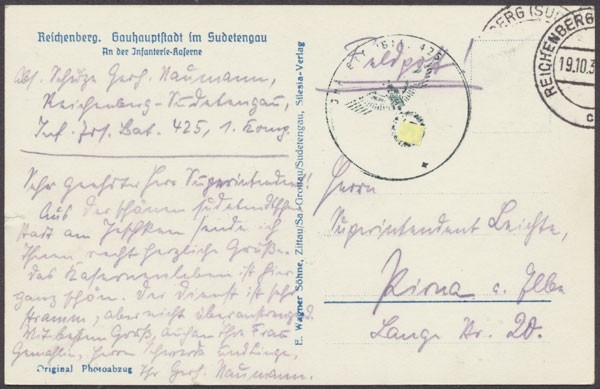 Reichenberg. Gauhauptstadt im Sudetengau
An der Infanterie-Kaserne
Abs. Schütze Gerh. Naumann,
Reichenberg-Sudetengau,
Inf. Ers. Bat. 425, 1. Komp.
Sehr geehrter Herr Superintendent!
Aus der schönen sudetendeutschen
Stadt am Jeschken sende ich
Ihnen recht herzliche Grüße.
Das Kasernenleben ist hier
ganz schön. Der Dienst ist sehr
stramm, aber nicht überanstrengend.
Mit bestem Gruß, auch an Ihre Frau
Gemahlin, Herrn
Ihr Gerh. Naumann.
Original Photoabzug
E. Wagner Söhne, Zittau/Sa.-Grottau/Sudetengau, Silesia-Verlag
Feldpost!
425
BERG (SU
REICHENBERG
19.10.3
c
Herrn
Superintendent Leichte,
Pirna a. Elbe
Lange Str. 20.